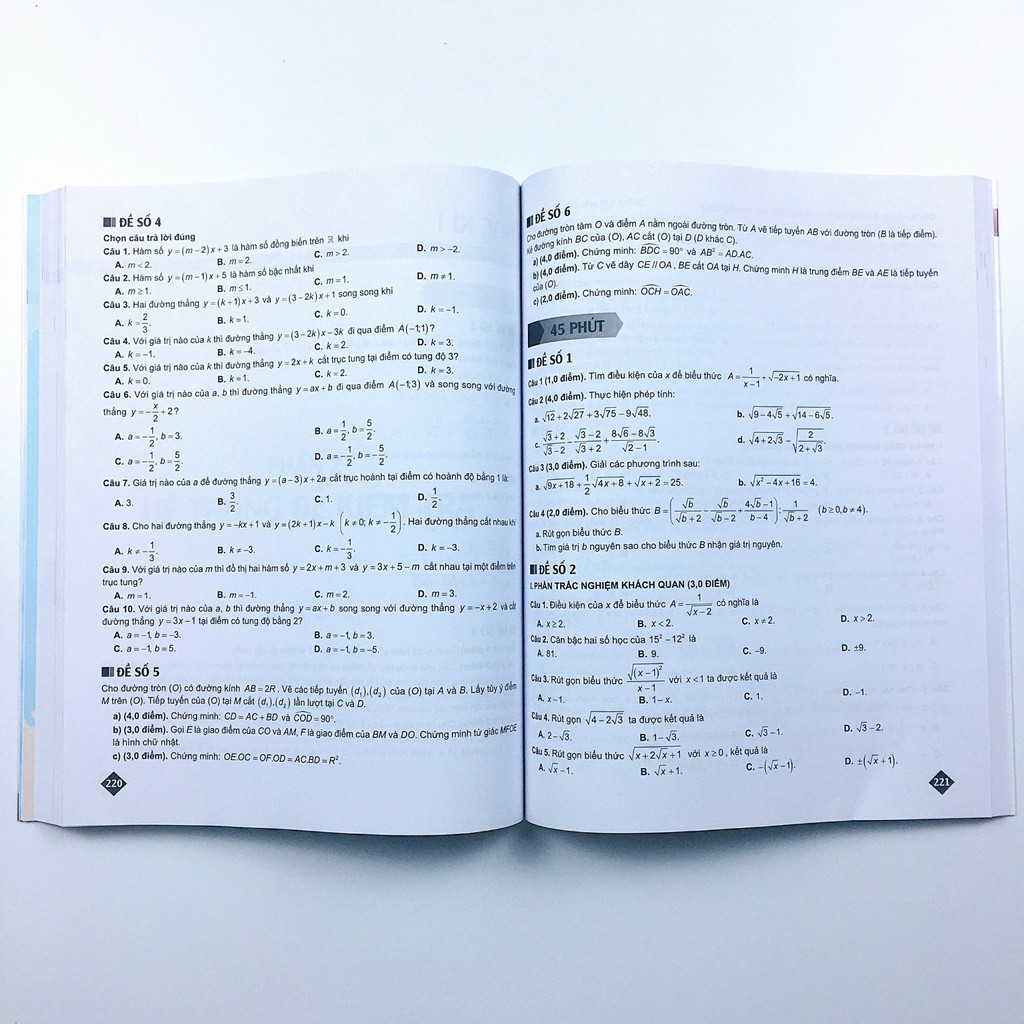 ĐỀ SỐ 4
Chọn câu trả lời đúng
Câu 1. Hàm số y = (m − 2)x + 3 là hàm số đồng biến trên ℝ khi
A. m < 2. B. m = 2. C. m > 2. D. m > −2.
Câu 2. Hàm số y = (m − 1)x + 5 là hàm số bậc nhất khi
A. m ≥ 1. B. m ≤ 1. C. m = 1. D. m ≠ 1.
Câu 3. Hai đường thẳng y = (k + 1)x + 3 và y = (3 − 2k)x + 1 song song khi
A. k = 2/3. B. k = 1. C. k = 0. D. k = −1.
Câu 4. Với giá trị nào của k thì đường thẳng y = (3 − 2k)x − 3k đi qua điểm A(−1;1)?
A. k = −1. B. k = −4. C. k = 2. D. k = 3.
Câu 5. Với giá trị nào của k thì đường thẳng y = 2x + k cắt trục tung tại điểm có tung độ 3?
A. k = 0. B. k = 1. C. k = 2. D. k = 3.
Câu 6. Với giá trị nào của a, b thì đường thẳng y = ax + b đi qua điểm A(−1;3) và song song với đường
thẳng y = −x/2 + 2?
A. a = −1/2, b = 3. B. a = 1/2, b = 5/2.
C. a = −1/2, b = 5/2. D. a = −1/2, b = −5/2.
Câu 7. Giá trị nào của a để đường thẳng y = (a − 3)x + 2a cắt trục hoành tại điểm có hoành độ bằng 1 là:
A. 3. B. 3/2. C. 1. D. 1/2.
Câu 8. Cho hai đường thẳng y = −kx + 1 và y = (2k + 1)x − k (k ≠ 0; k ≠ −1/2). Hai đường thẳng cắt nhau khi
A. k ≠ −1/3. B. k ≠ −3. C. k = −1/3. D. k = −3.
Câu 9. Với giá trị nào của m thì đồ thị hai hàm số y = 2x + m + 3 và y = 3x + 5 − m cắt nhau tại một điểm trên
trục tung?
A. m = 1. B. m = −1. C. m = 2. D. m = 3.
Câu 10. Với giá trị nào của a, b thì đường thẳng y = ax + b song song với đường thẳng y = −x + 2 và cắt
đường thẳng y = 3x − 1 tại điểm có tung độ bằng 2?
A. a = −1, b = −3. B. a = −1, b = 3.
C. a = −1, b = 5. D. a = −1, b = −5.
ĐỀ SỐ 5
Cho đường tròn (O) có đường kính AB = 2R. Vẽ các tiếp tuyến (d₁),(d₂) của (O) tại A và B. Lấy tùy ý điểm
M trên (O). Tiếp tuyến của (O) tại M cắt (d₁),(d₂) lần lượt tại C và D.
a) (4,0 điểm). Chứng minh: CD = AC + BD và COD = 90°.
b) (3,0 điểm). Gọi E là giao điểm của CO và AM, F là giao điểm của BM và DO. Chứng minh tứ giác MFOE
là hình chữ nhật.
c) (3,0 điểm). Chứng minh: OE.OC = OF.OD = AC.BD = R².
220
ĐỀ SỐ 6
Cho đường tròn tâm O và điểm A nằm ngoài đường tròn. Từ A vẽ tiếp tuyến AB với đường tròn (B là tiếp điểm).
Kẻ đường kính BC của (O), AC cắt (O) tại D (D khác C).
a) (4,0 điểm). Chứng minh: BDC = 90° và AB² = AD.AC.
b) (4,0 điểm). Từ C vẽ dây CE // OA, BE cắt OA tại H. Chứng minh H là trung điểm BE và AE là tiếp tuyến
của (O).
c) (2,0 điểm). Chứng minh: OCH = OAC.
45 PHÚT
ĐỀ SỐ 1
Câu 1 (1,0 điểm). Tìm điều kiện của x để biểu thức A = 1/(x − 1) + √(−2x + 1) có nghĩa.
Câu 2 (4,0 điểm). Thực hiện phép tính:
a. √12 + 2√27 + 3√75 − 9√48. b. √(9 − 4√5) + √(14 − 6√5).
c. (√3 + 2)/(√3 − 2) − (√3 − 2)/(√3 + 2) + (8√6 − 8√3)/(√2 − 1). d. √(4 + 2√3) − √(2/(2 + √3)).
Câu 3 (3,0 điểm). Giải các phương trình sau:
a. √(9x + 18) + 1/2√(4x + 8) + √(x + 2) = 25. b. √(x² − 4x + 16) = 4.
Câu 4 (2,0 điểm). Cho biểu thức B = (√b/(√b + 2) − √b/(√b − 2) + (4√b − 1)/(b − 4)) : 1/(√b + 2) (b ≥ 0, b ≠ 4).
a. Rút gọn biểu thức B.
b. Tìm giá trị b nguyên sao cho biểu thức B nhận giá trị nguyên.
ĐỀ SỐ 2
I. PHẦN TRẮC NGHIỆM KHÁCH QUAN (3,0 ĐIỂM)
Câu 1. Điều kiện của x để biểu thức A = 1/√(x − 2) có nghĩa là
A. x ≥ 2. B. x < 2. C. x ≠ 2. D. x > 2.
Câu 2. Căn bậc hai số học của 15² − 12² là
A. 81. B. 9. C. −9. D. ±9.
Câu 3. Rút gọn biểu thức √((x − 1)²)/(x − 1) với x < 1 ta được kết quả là
A. x − 1. B. 1 − x. C. 1. D. −1.
Câu 4. Rút gọn √(4 − 2√3) ta được kết quả là
A. 2 − √3. B. 1 − √3. C. √3 − 1. D. √3 − 2.
Câu 5. Rút gọn biểu thức √(x + 2√x + 1) với x ≥ 0, kết quả là
A. √x − 1. B. √x + 1. C. −(√x − 1). D. ±(√x + 1).
221